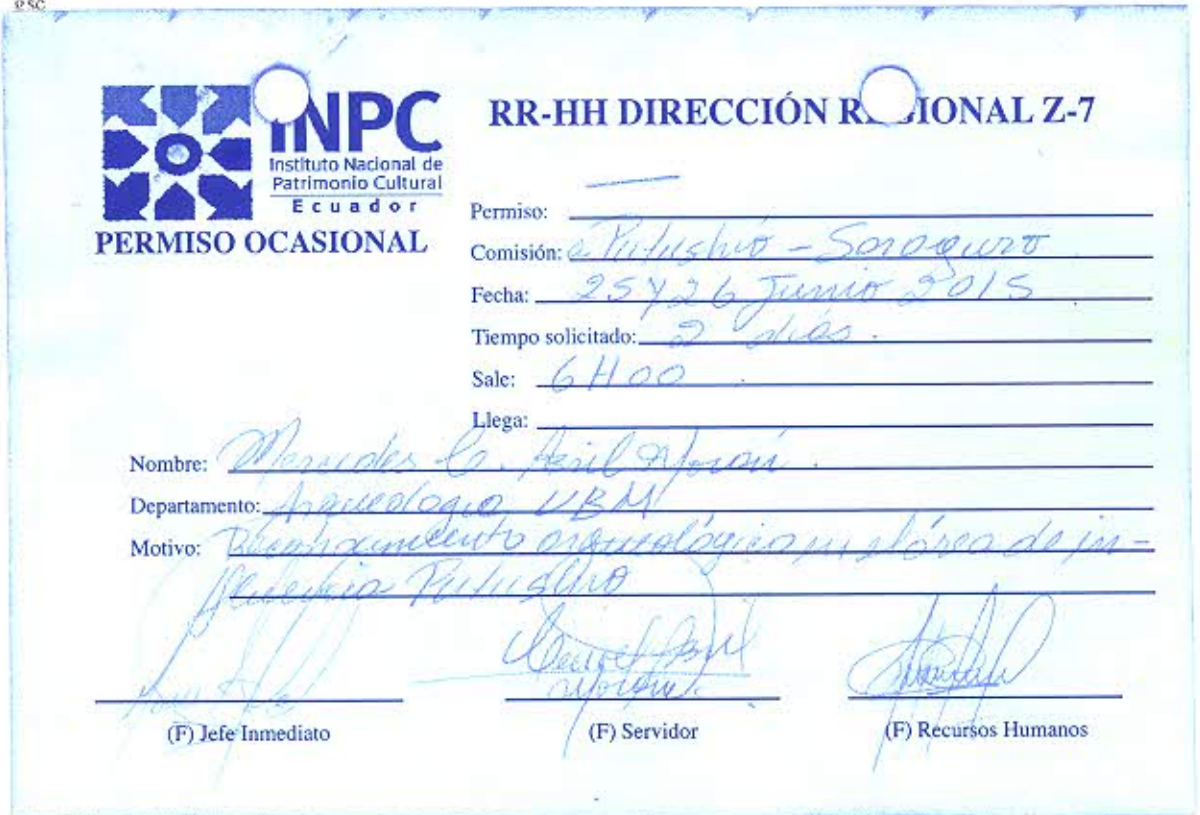 INPC
Instituto Nacional de
Patrimonio Cultural
Ecuador
PERMISO OCASIONAL
RR-HH DIRECCIÓN REGIONAL Z-7
Permiso: —
Comisión: a Putushío - Saraguro
Fecha: 25 y 26 Junio 2015
Tiempo solicitado: 2 días.
Sale: 6H00
Llega:
Nombre: Mercedes C. Abril Morán.
Departamento: Arqueología UBM
Motivo: Reconocimiento arqueológico en el área de in-
fluencia Putushío
Abril
Morán.
(F) Jefe Inmediato
(F) Servidor
(F) Recursos Humanos